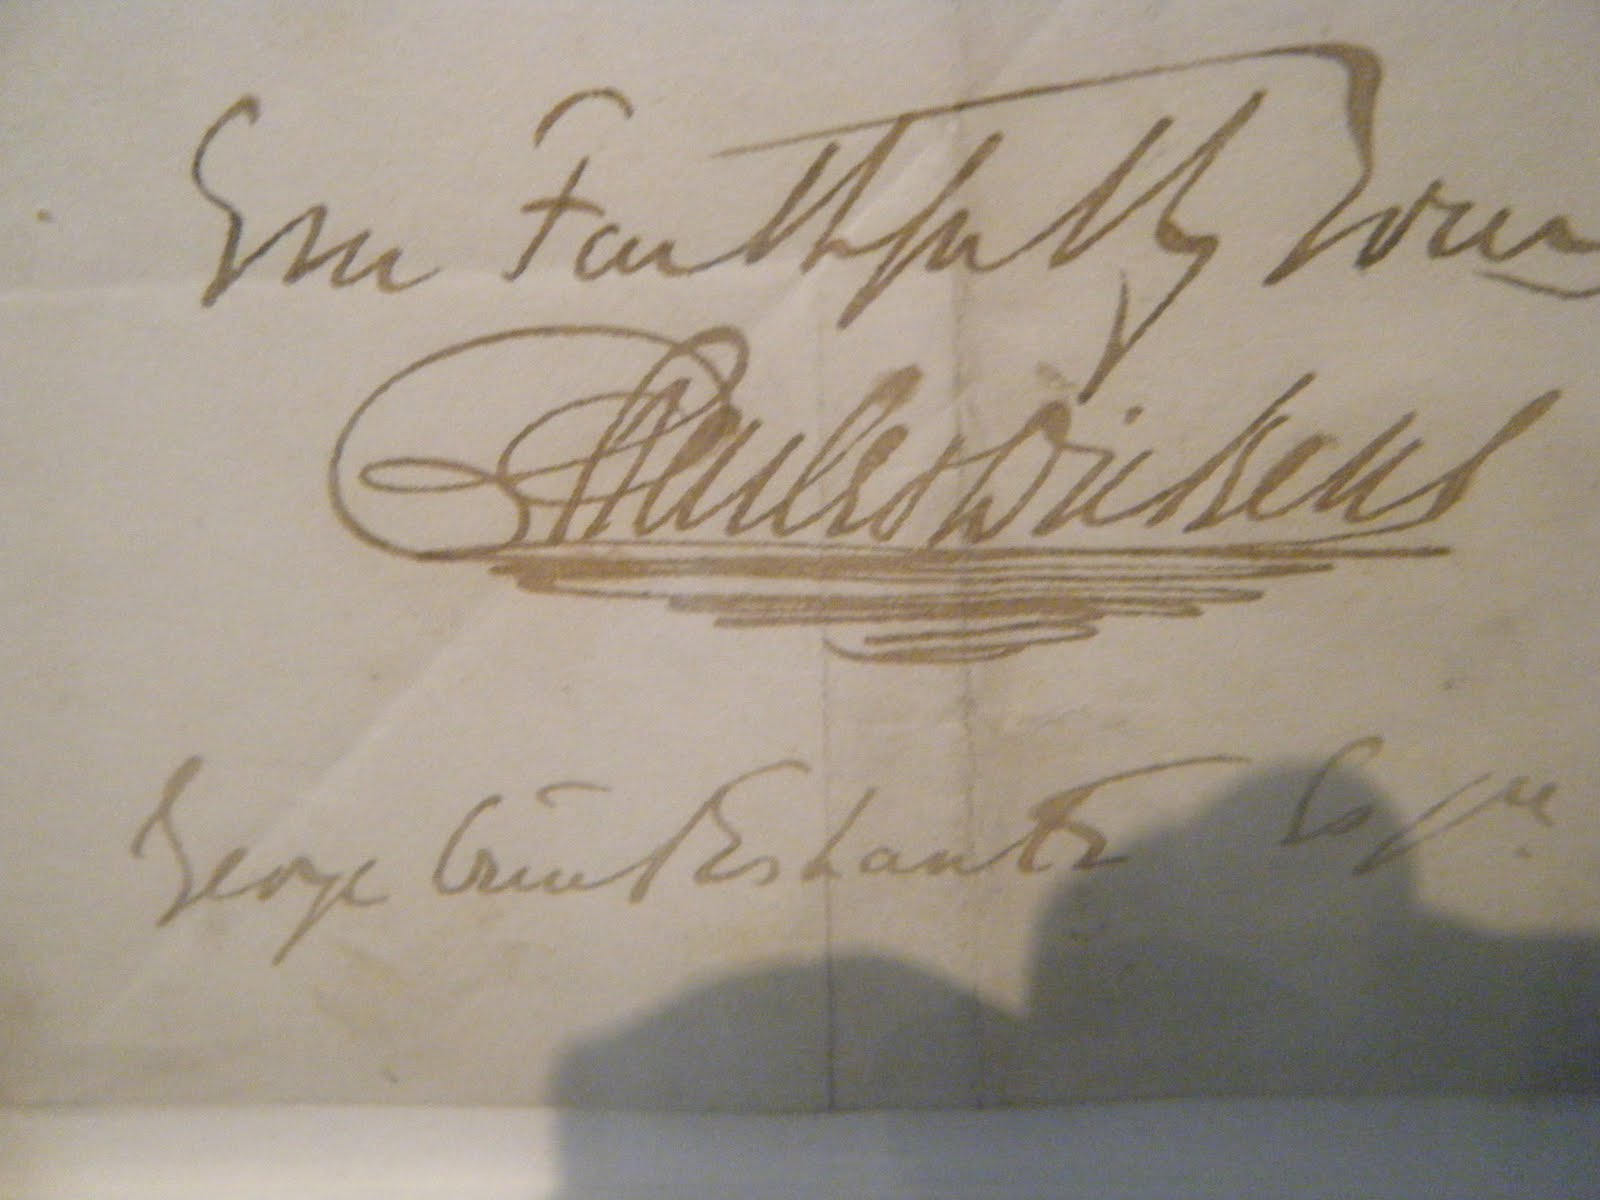 Ever Faithfully Yours
Charles Dickens
George Cruikshank Esqre.